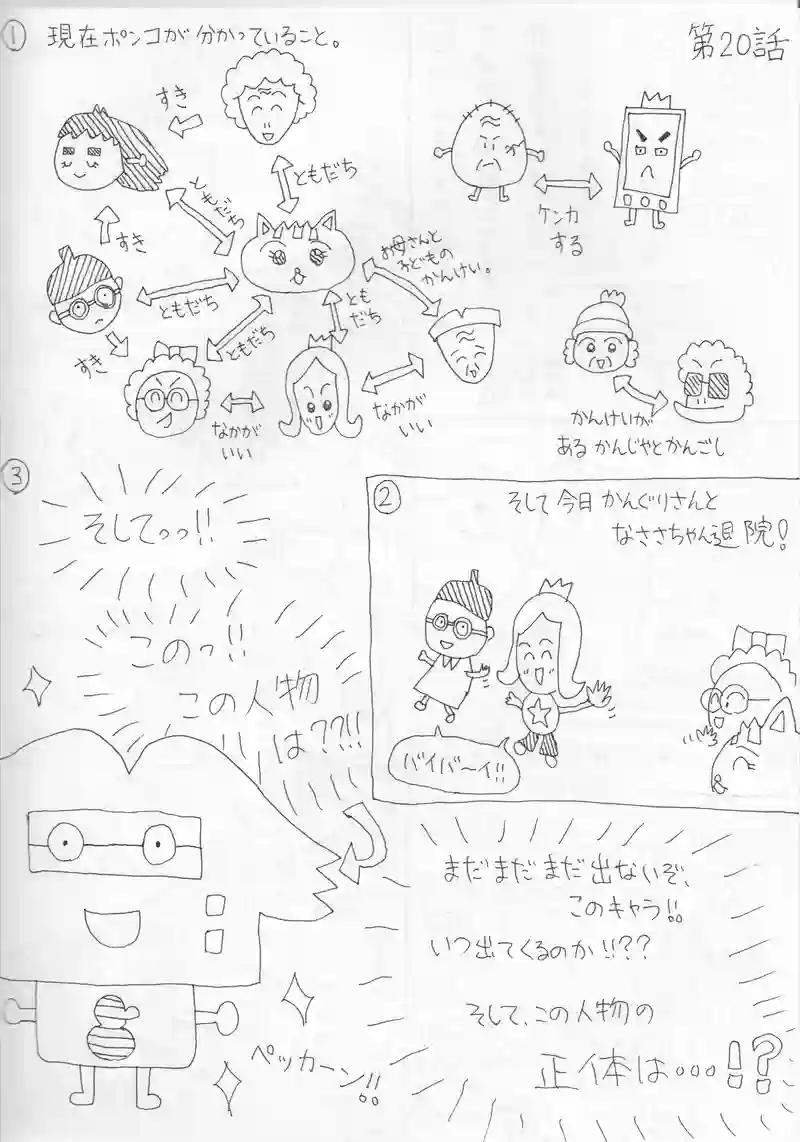 第20話
① 現在ポンコが分かっていること。
すき
ともだち
ともだち
すき
ともだち
すき
ともだち
とも
だち
お母さんと
子どもの
かんけい。
なかが
いい
なかが
いい
ケンカ
する
かんけいが
あるかんじゃとかんごし
②
そして今日かんぐりさんと
なささちゃん退院!
バイバ〜イ!!
③
そしてっっ!!
このっ!!
この人物
は??!!
ペッカーン!!
まだまだまだ出ないぞ、
このキャラ!!
いつ出てくるのか!!??
そして、この人物の
正体は…!?